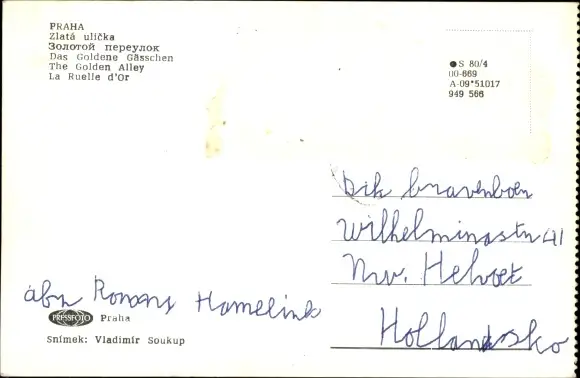 PRAHA
Zlatá ulička
Золотой переулок
Das Goldene Gässchen
The Golden Alley
La Ruelle d'Or
S 80/4
00-669
A-09*51017
949 566
Dik
Wilhelminastr 41
Nw. Helvoet
Hollandsko
Hamelink
PRESSFOTO Praha
Snímek: Vladimír Soukup